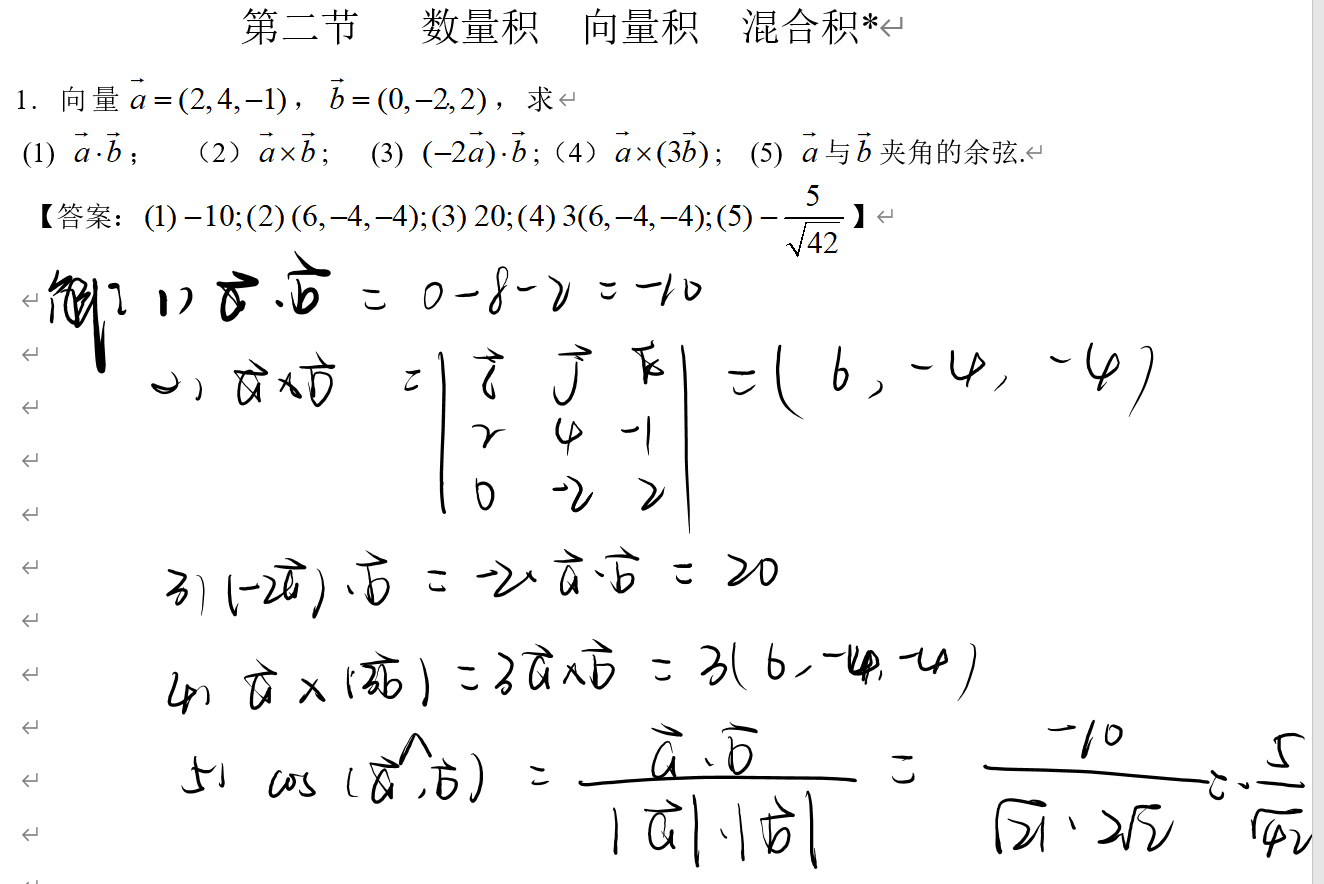 第二节 数量积 向量积 混合积*↵
1. 向量 a⃗ = (2, 4, −1)，b⃗ = (0, −2, 2)，求↵
(1) a⃗·b⃗； （2）a⃗×b⃗; (3) (−2a⃗)·b⃗;（4）a⃗×(3b⃗); (5) a⃗与b⃗夹角的余弦.↵
【答案：(1) −10; (2) (6, −4, −4); (3) 20; (4) 3(6, −4, −4); (5) −5/√42】↵
解: 1) a⃗·b⃗ = 0−8−2 = −10
2) a⃗×b⃗ = | i⃗ j⃗ k⃗ | = (6, −4, −4)
2 4 −1
0 −2 2
3) (−2a⃗)·b⃗ = −2·a⃗·b⃗ = 20
4) a⃗×(3b⃗) = 3a⃗×b⃗ = 3(6, −4, −4)
5) cos(a⃗^,b⃗) = a⃗·b⃗ / |a⃗|·|b⃗| = −10 / √21·2√2 = −5/√42